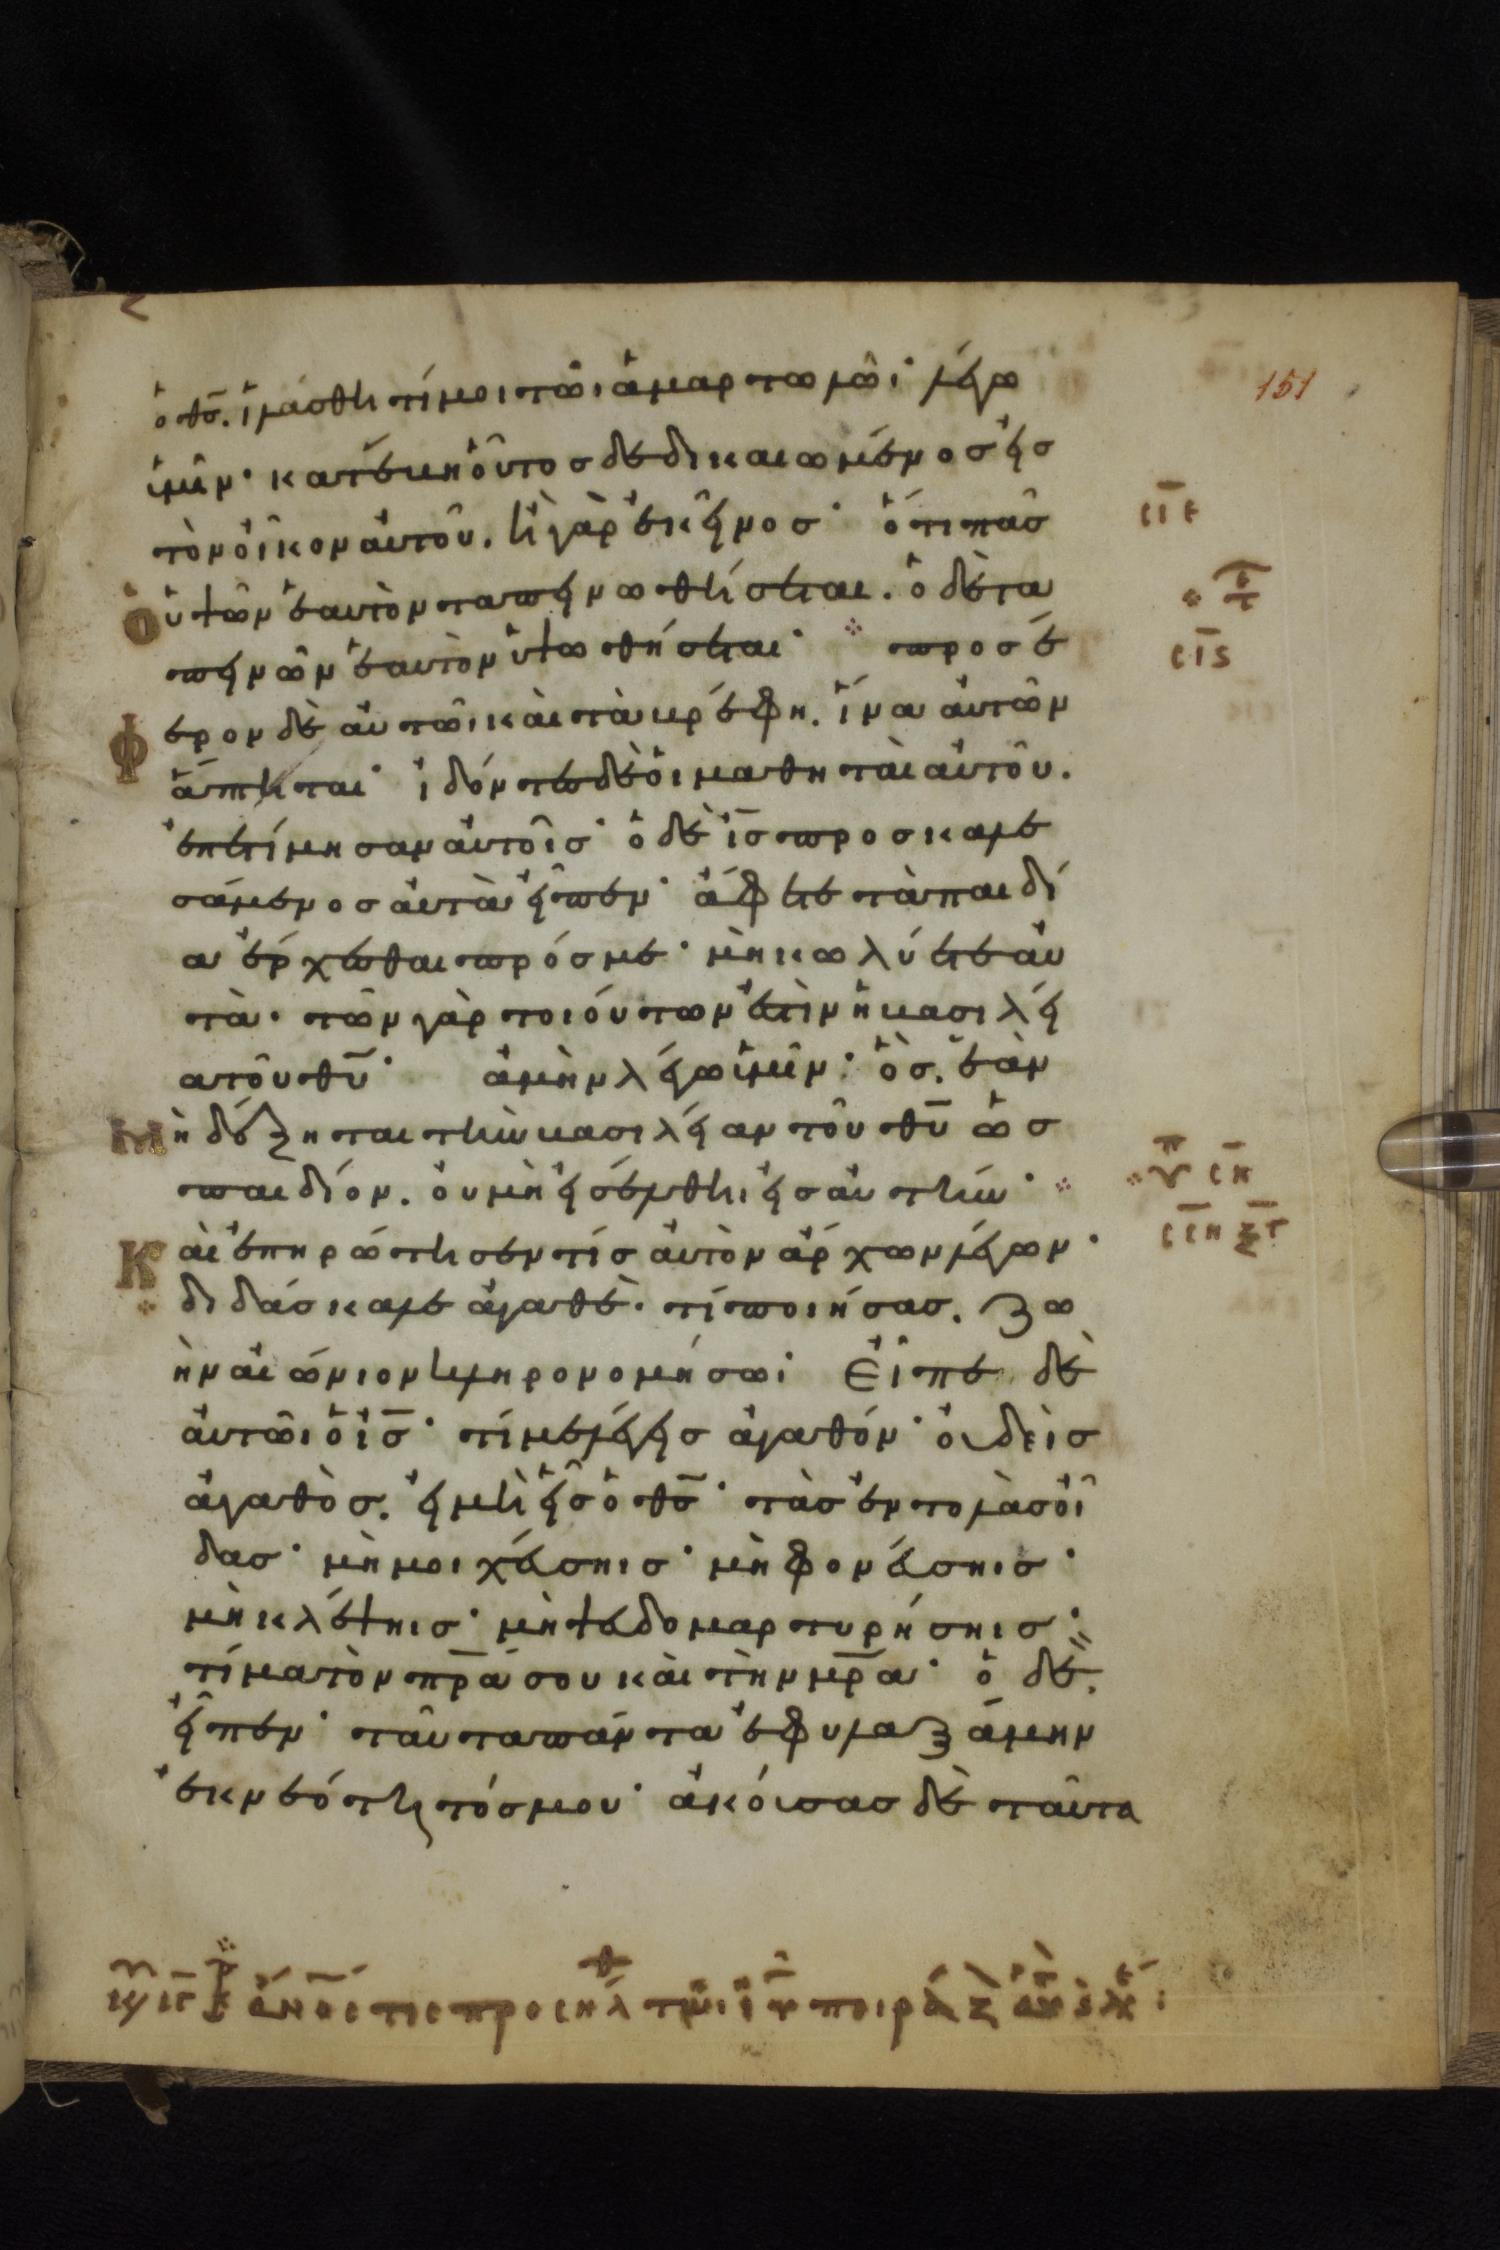 151
ὁ θς̄. ἱλάσθητί μοι τῶι ἁμαρτωλῶι· λέγω
ὑμῖν· κατέβη οὗτος δεδικαιωμένος εἰς
τὸν οἶκον αὐτοῦ. ἢ γὰρ ἐκεῖνος· ὅτι πᾶς
ὁ ὑψῶν ἑαυτὸν ταπεινωθήσεται. ὁ δὲ τα
πεινῶν ἑαυτὸν ὑψωθήσεται· προσέ
φερον δὲ αὐτῶι καὶ τὰ βρέφη. ἵνα αὐτῶν
ἅπτηται· ἰδόντες δὲ οἱ μαθηταὶ αὐτοῦ.
ἐπετίμησαν αὐτοῖς· ὁ δὲ ις̄ προσκαλε
σάμενος αὐτὰ εἶπεν· ἄφετε τὰ παιδί
α ἔρχεσθαι πρός με· μὴ κωλύετε αὐ
τά· τῶν γὰρ τοιούτων ἐστὶν ἡ βασιλεί
α τοῦ θῡ· ἀμὴν λέγω ὑμῖν· ὃς ἐὰν
μὴ δέξηται τὴν βασιλείαν τοῦ θῡ ὡς
παιδίον. οὐ μὴ εἰσέλθηι εἰς αὐτήν·
καὶ ἐπηρώτησέν τις αὐτὸν ἄρχων λέγων·
διδάσκαλε ἀγαθέ· τί ποιήσας. ζω
ὴν αἰώνιον κληρονομήσω· Εἶπε δὲ
αὐτῶι ὁ ις̄· τί με λέγεις ἀγαθόν· οὐδεὶς
ἀγαθὸς. εἰ μὴ εἷς ὁ θς̄· τὰς ἐντολὰς οἶ
δας· μὴ μοιχεύσηις· μὴ φονεύσηις·
μὴ κλέψηις· μὴ ψευδομαρτυρήσηις·
τίμα τὸν πρ̄α σου καὶ τὴν μρ̄α· ὁ δὲ
εἶπεν· ταῦτα πάντα ἐφυλαξάμην
ἐκ νεότητός μου· ἀκούσας δὲ ταῦτα